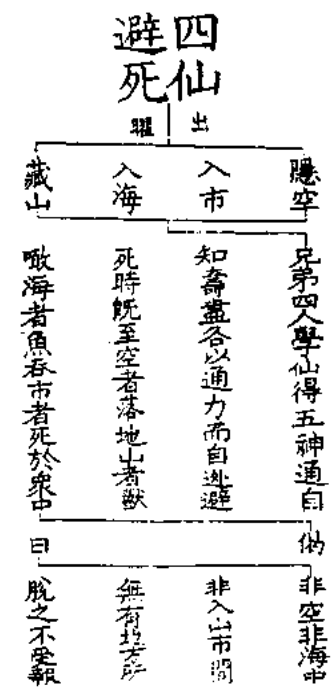 四仙
避死
出
曜
隱空
入市
入海
藏山
兄弟四人學仙得五神通自
知壽盡各以通力而自逃避
死時既至空者落地山者獸
噉海者魚吞市者死於眾中
偈
曰
非空非海中
非入山市間
無有地方所
脫之不受報